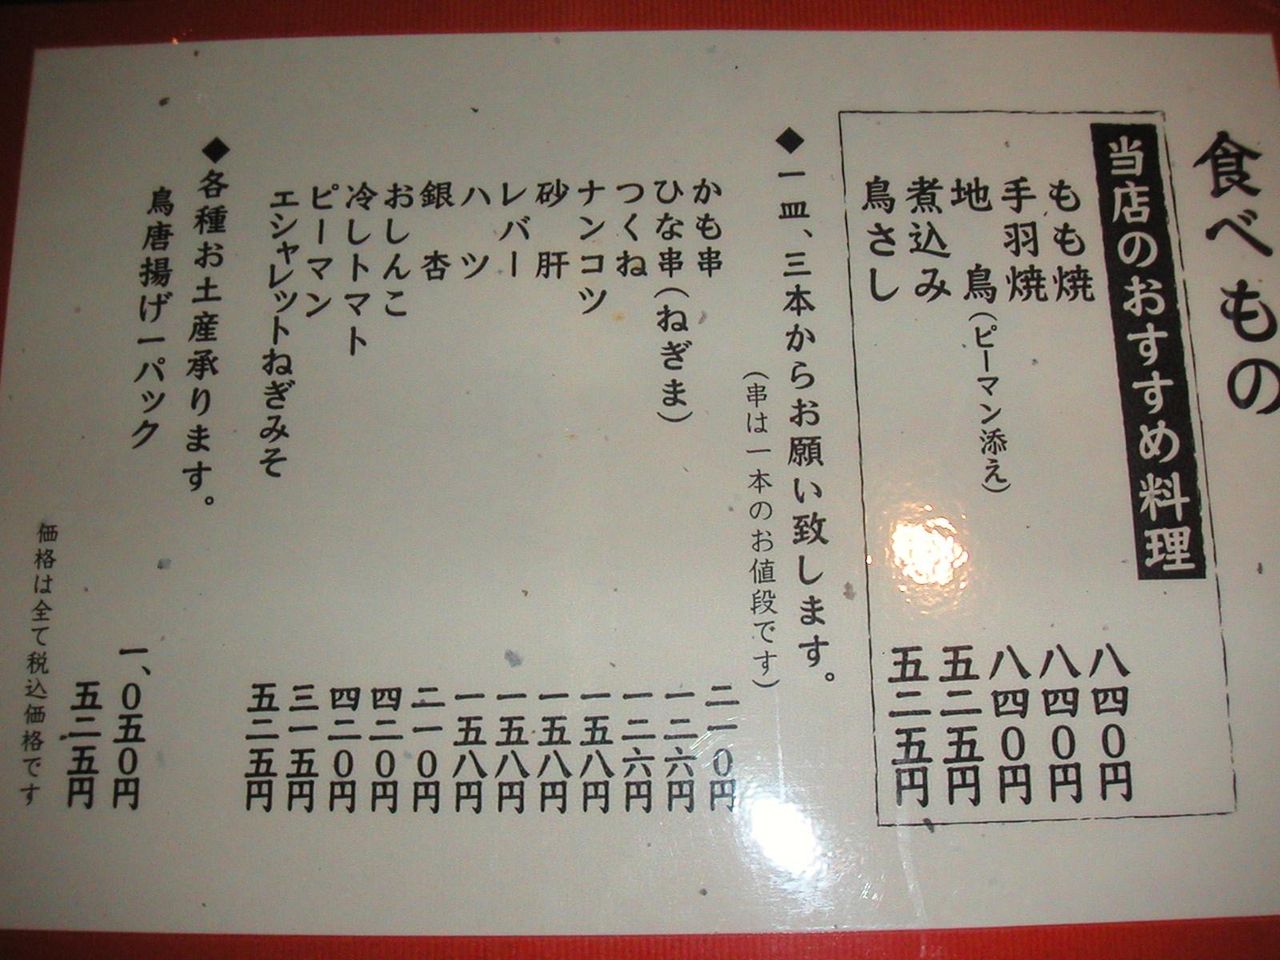 食べもの
当店のおすすめ料理
もも焼 八四〇円
手羽焼 八四〇円
地鳥(ピーマン添え) 八四〇円
煮込み 五二五円
鳥さし 五二五円
◆一皿、三本からお願い致します。
(串は一本のお値段です)
かも串 二一〇円
ひな串(ねぎま) 一二六円
つくね 一二六円
ナンコツ 一五八円
砂肝 一五八円
レバー 一五八円
ハツ 一五八円
銀杏 二一〇円
おしんこ 四二〇円
冷しトマト 四二〇円
ピーマン 三一五円
エシャレットねぎみそ 五二五円
◆各種お土産承ります。
鳥唐揚げ一パック 一、〇五〇円
五二五円
価格は全て税込価格です